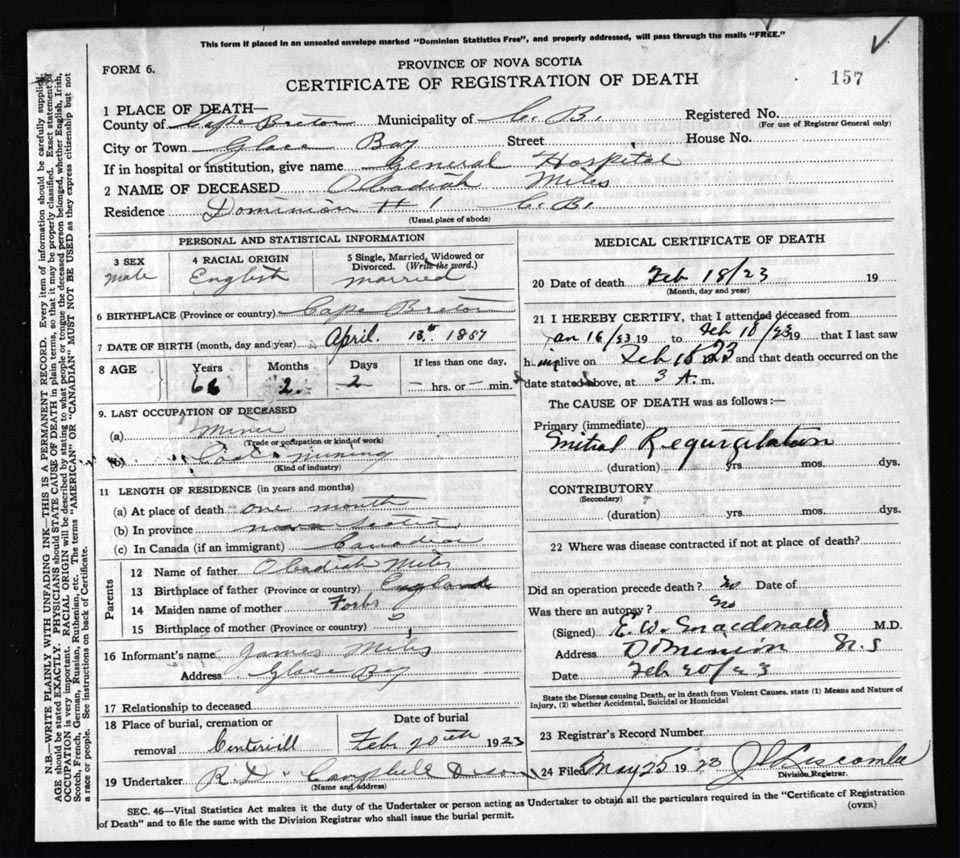 This form if placed in an unsealed envelope marked "Dominion Statistics Free", and properly addressed, will pass through the mails "FREE."
FORM 6.
PROVINCE OF NOVA SCOTIA
CERTIFICATE OF REGISTRATION OF DEATH
157
1 PLACE OF DEATH—
County of Cape Breton Municipality of C. B. Registered No.
(For use of Registrar General only)
City or Town Glace Bay Street House No.
If in hospital or institution, give name General Hospital
2 NAME OF DECEASED Obadiah Miles
Residence Dominion # 1 C. B.
(Usual place of abode)
PERSONAL AND STATISTICAL INFORMATION
3 SEX 4 RACIAL ORIGIN 5 Single, Married, Widowed or Divorced. (Write the word.)
Male English Married
6 BIRTHPLACE (Province or country) Cape Breton
7 DATE OF BIRTH (month, day and year) April. 18
8 AGE Years Months Days If less than one day,
66 2 2 — hrs. or — min.
9. LAST OCCUPATION OF DECEASED
(a) Miner
(Trade or occupation or kind of work)
(b) Coal mining
(Kind of industry)
11 LENGTH OF RESIDENCE (in years and months)
(a) At place of death One month
(b) In province Nova Scotia
(c) In Canada (if an immigrant) Canadian
Parents
12 Name of father Obadiah Miles
13 Birthplace of father (Province or country) England
14 Maiden name of mother Forbs
15 Birthplace of mother (Province or country)
16 Informant's name James Miles
Address Glace Bay
17 Relationship to deceased
18 Place of burial, cremation or removal Centervill
Date of burial
Febr 20th 1923
19 Undertaker R. D. Campbell
(Name and address)
MEDICAL CERTIFICATE OF DEATH
20 Date of death Feb 18/23 19
(Month, day and year)
21 I HEREBY CERTIFY, that I attended deceased from
Jan 16/23 19 to Feb 18/23 19 that I last saw
him alive on Feb 18 23 and that death occurred on the
date stated above, at 3 A. m.
The CAUSE OF DEATH was as follows:—
Primary (immediate)
Mitral Regurgitation
(duration) yrs. mos. dys.
CONTRIBUTORY
(Secondary)
(duration) yrs. mos. dys.
22 Where was disease contracted if not at place of death?
Did an operation precede death? No Date of
Was there an autopsy? No
(Signed) E. W. Macdonald M.D.
Address Dominion N. S
Date Feb 20/23
State the Disease causing Death, or in death from Violent Causes, state (1) Means and Nature of
Injury, (2) whether Accidental, Suicidal or Homicidal
23 Registrar's Record Number
24 Filed May 25 1923
Division Registrar.
SEC. 46—Vital Statistics Act makes it the duty of the Undertaker or person acting as Undertaker to obtain all the particulars required in the "Certificate of Registration
of Death" and to file the same with the Division Registrar who shall issue the burial permit. (OVER)
N.B.—WRITE PLAINLY WITH UNFADING INK—THIS IS A PERMANENT RECORD. Every item of information should be carefully supplied.
AGE should be stated EXACTLY. PHYSICIANS should STATE CAUSE OF DEATH in plain terms, so that it may be properly classified. Exact statement of
OCCUPATION is very important. RACIAL ORIGIN will be described by stating to what people or tongue the deceased person belonged, whether English, Irish,
Scotch, French, German, Russian, Ruthenian, etc. The terms "AMERICAN" or "CANADIAN" MUST NOT BE USED as they express citizenship but not
a race or people. See instructions on back of Certificate.